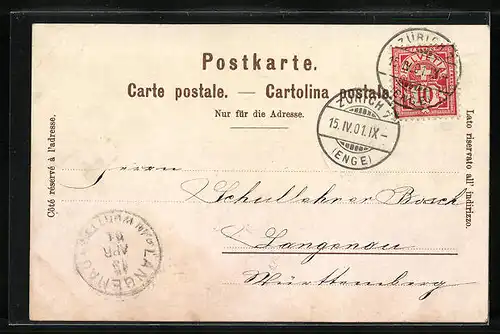 Postkarte.
Carte postale. — Cartolina postale.
Nur für die Adresse.
Côté réservé à l'adresse.
Lato riservato all' indirizzo.
ZÜRICH
HELVETIA
10
ZÜRICH 7
15.IV.01.IX–
(ENGE)
Herrn
Schullehrer Bosch
Langenau
Württemberg
LANGENAU
APR
01